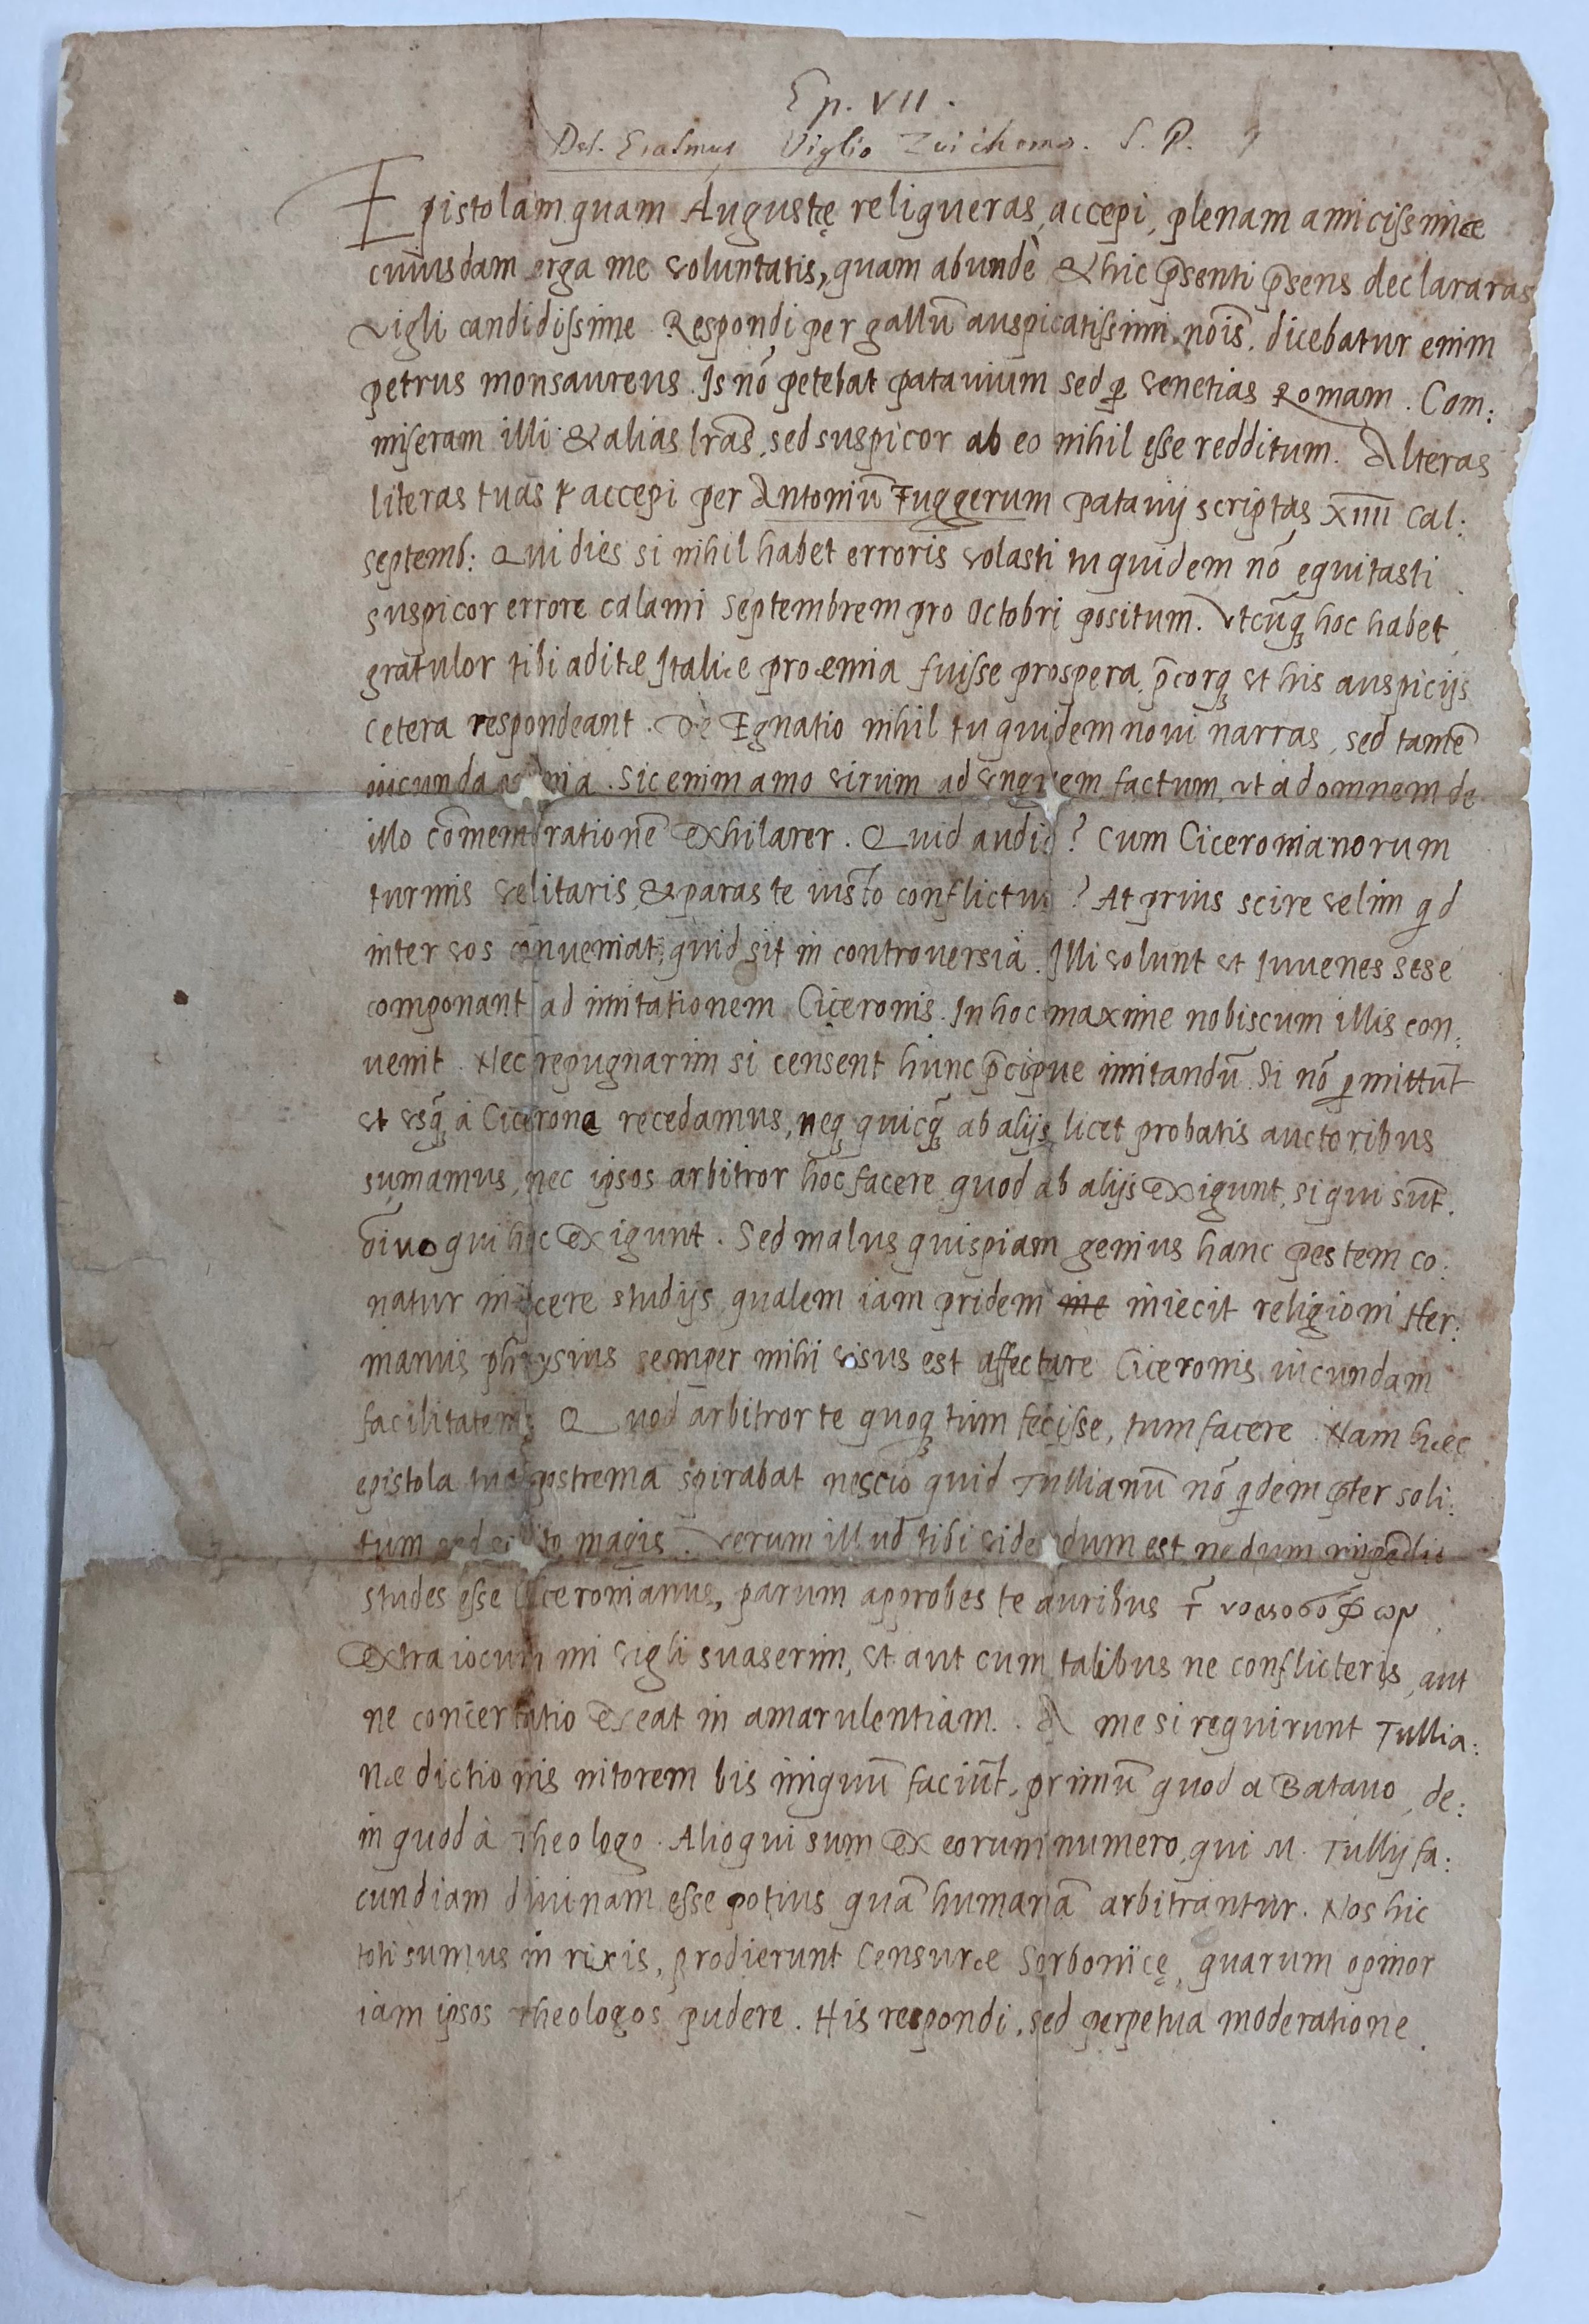 Ep. VII.
Des. Erasmus Viglio Zuichemo. S. P.
Epistolam quam Augustę reliqueras, accepi, plenam amicissimæ
cuiusdam erga me voluntatis, quam abundè & hic p̄senti p̄sens declararas
vigli candidissime. Respondi per gallū auspicatissimi nōis. dicebatur enim
petrus monsaureus. Is nō petebat patavium sed ꝑ venetias Romam. Com:
miseram illi & alias lrās, sed suspicor ab eo nihil esse redditum. Alteras
literas tuas accepi per Antoniū Fuggerum patavij scriptas XIIII cal:
septemb: Qui dies si nihil habet erroris volasti tu quidem nō equitasti
suspicor errore calami Septembrem pro Octobri positum. Vtcūq; hoc habet
gratulor tibi aditæ Italiæ proemia fuisse prospera, p̄corq; vt his auspicijs
cetera respondeant. De Egnatio nihil tu quidem novi narras, sed tamē
iucunda omnia. Sic enim amo virum ad unguem factum, vt ad omnem de
illo cōmemorationē exhilarer. Quid audio? Cum Ciceronianorum
turmis velitaris, & paras te iusto conflictui? At prius scire velim qd
inter vos conveniat, quid sit in controversia. Illi volunt vt Iuvenes sese
componant ad imitationem Ciceronis. In hoc maxime nobiscum illis con:
venit. Nec repugnarim si censent hunc p̄cipue imitandū. Si nō ꝑmittūt
vt vsq̄ à Cicerone recedamus, neq; quicq̄ ab alijs licet probatis auctoribus
sumamus, nec ipsos arbitror hoc facere quod ab alijs exigunt, si qui sūt
qui hoc exigunt. Sed malus quispiam genius hanc pestem co:
natur inijcere studijs qualem iam pridem iniecit religioni Her:
manus phrysius semper mihi visus est affectare Ciceronis iucundam
facilitatem. Quod arbitror te quoq; tum fecisse, tum facere. Nam hæc
epistola tua postrema spirabat nescio quid Tullianū nō qdem p̄ter soli:
tum sed solito magis. Verum illud tibi videndum est, ne dum impēdio
studes esse Ciceronianus, parum approbes te auribus τ̄ νοσοσόφων.
Extra iocum mi vigli suaserim, vt aut cum talibus ne conflicteris, aut
ne concertatio exeat in amarulentiam. A me si requirunt Tullia:
næ dictionis nitorem bis iniquū faciūt, primū quod a Batavo, de:
in quod à Theologo. Alioqui sum ex eorum numero, qui M. Tullij fa:
cundiam divinam esse potius quā humanā arbitrantur. Nos hic
toti sumus in rixis, prodierunt Censuræ Sorbonicę, quarum opinor
iam ipsos theologos pudere. His respondi, sed perpetua moderatione